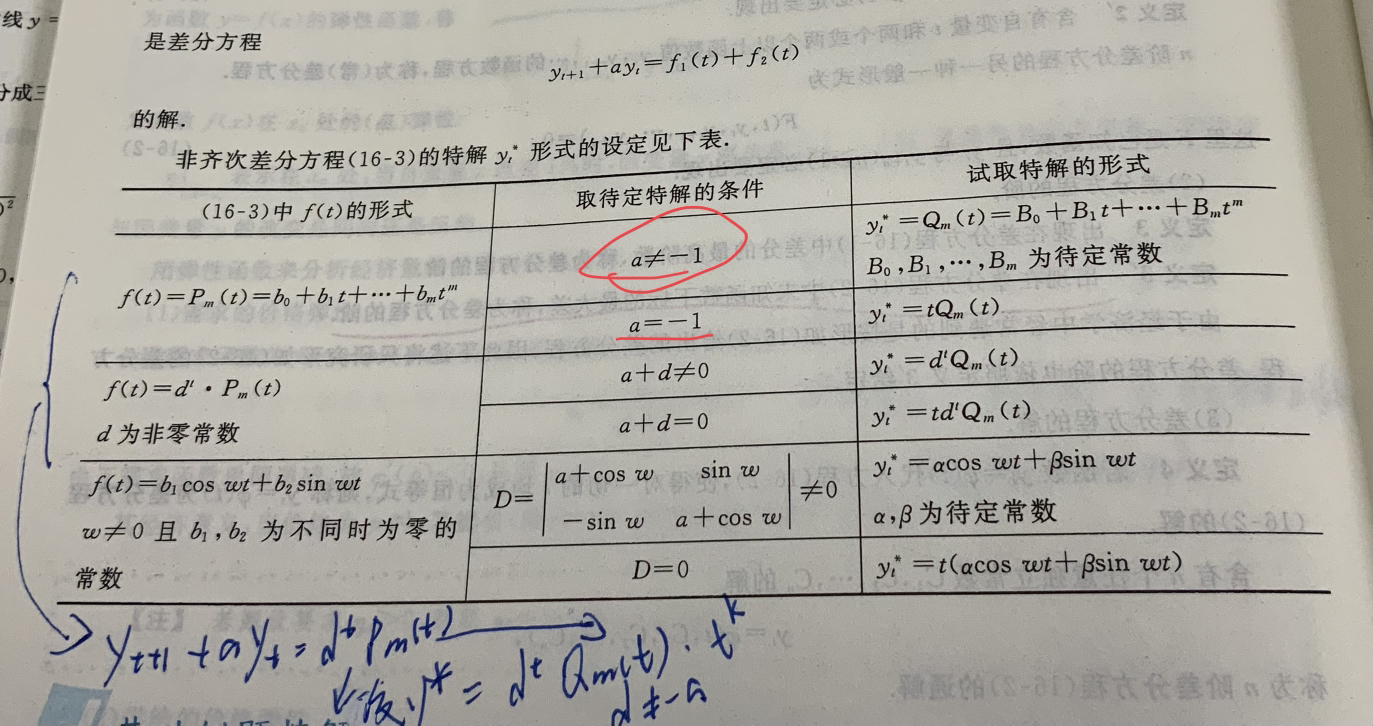 线 y =
是差分方程
y_{t+1}+ay_t=f_1(t)+f_2(t)
分成三
的解.
非齐次差分方程(16-3)的特解 y_t^* 形式的设定见下表.
(16-3)中 f(t)的形式 取待定特解的条件 试取特解的形式
f(t)=P_m(t)=b_0+b_1t+⋯+b_mt^m
a≠-1
y_t^*=Q_m(t)=B_0+B_1t+⋯+B_mt^m
B_0,B_1,⋯,B_m 为待定常数
a=-1
y_t^*=tQ_m(t)
f(t)=d^t·P_m(t)
d 为非零常数
a+d≠0
y_t^*=d^tQ_m(t)
a+d=0
y_t^*=td^tQ_m(t)
f(t)=b_1cos wt+b_2sin wt
w≠0 且 b_1,b_2 为不同时为零的
常数
D=|a+cos w sin w
-sin w a+cos w|≠0
y_t^*=αcos wt+βsin wt
α,β为待定常数
D=0
y_t^*=t(αcos wt+βsin wt)
y_{t+1}+ay_t=d^tP_m(t)
设y^*=d^tQ_m(t)·t^k
d≠-a